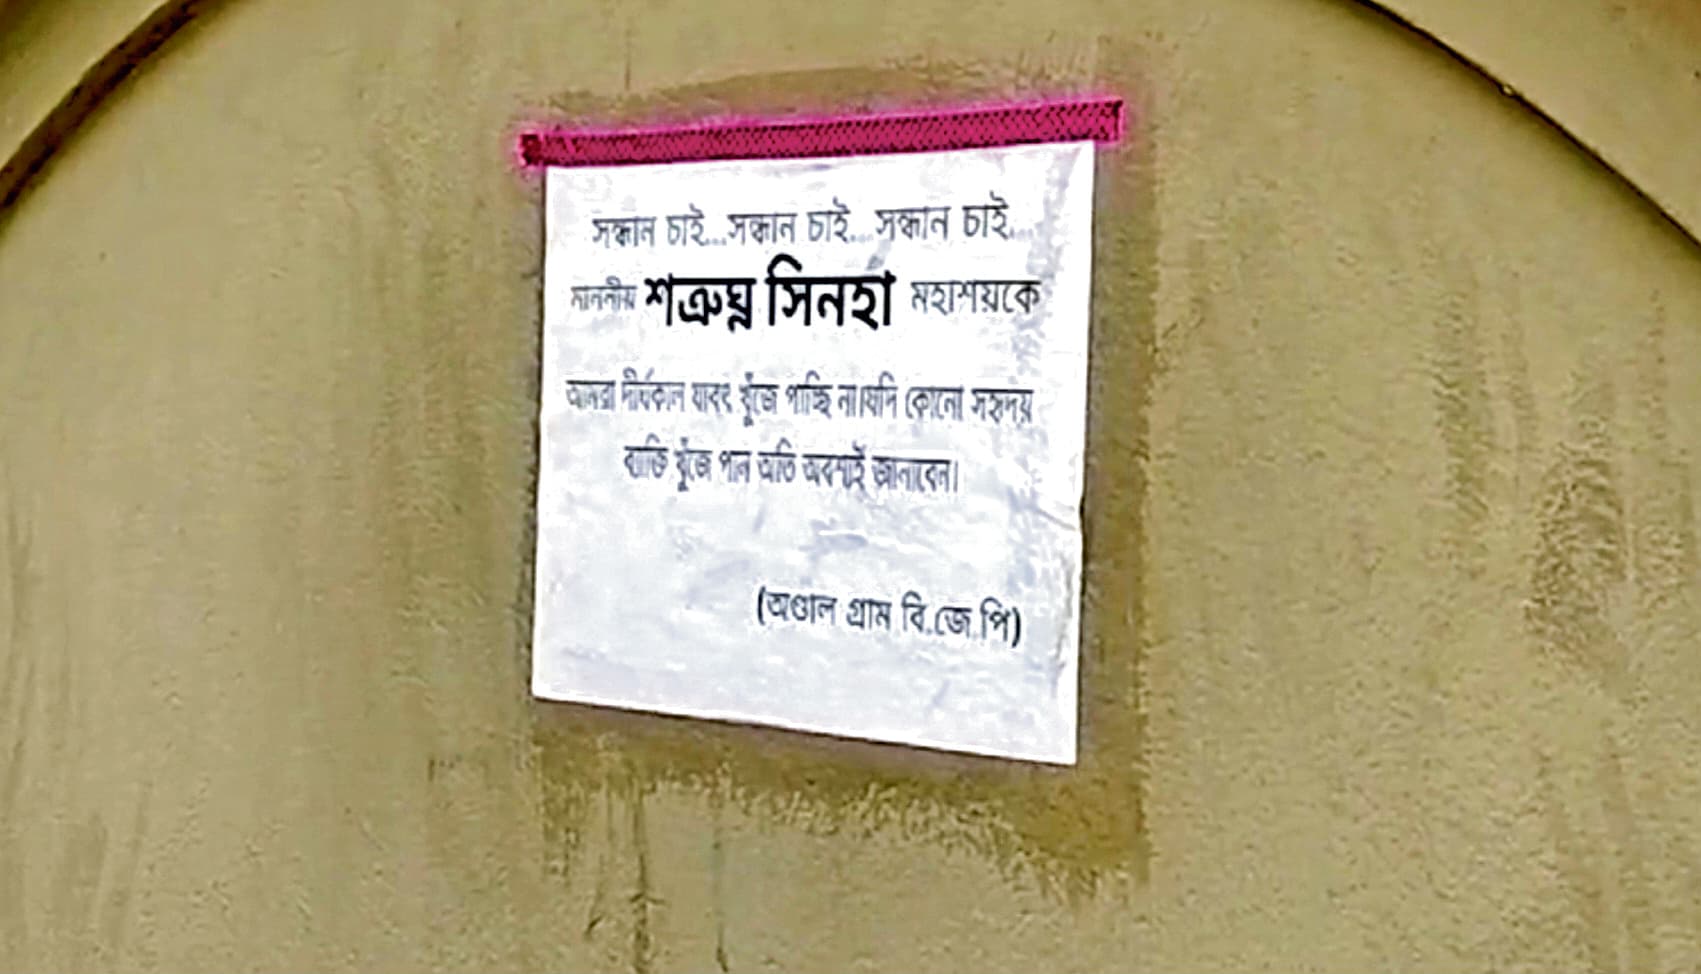 সন্ধান চাই...সন্ধান চাই...সন্ধান চাই...
মাননীয় শত্রুঘ্ন সিনহা মহাশয়কে
আমরা দীর্ঘকাল যাবৎ খুঁজে পাচ্ছি না।যদি কোনো সহৃদয়
ব্যক্তি খুঁজে পান অতি অবশ্যই জানাবেন।
(অণ্ডাল গ্রাম বি.জে.পি)